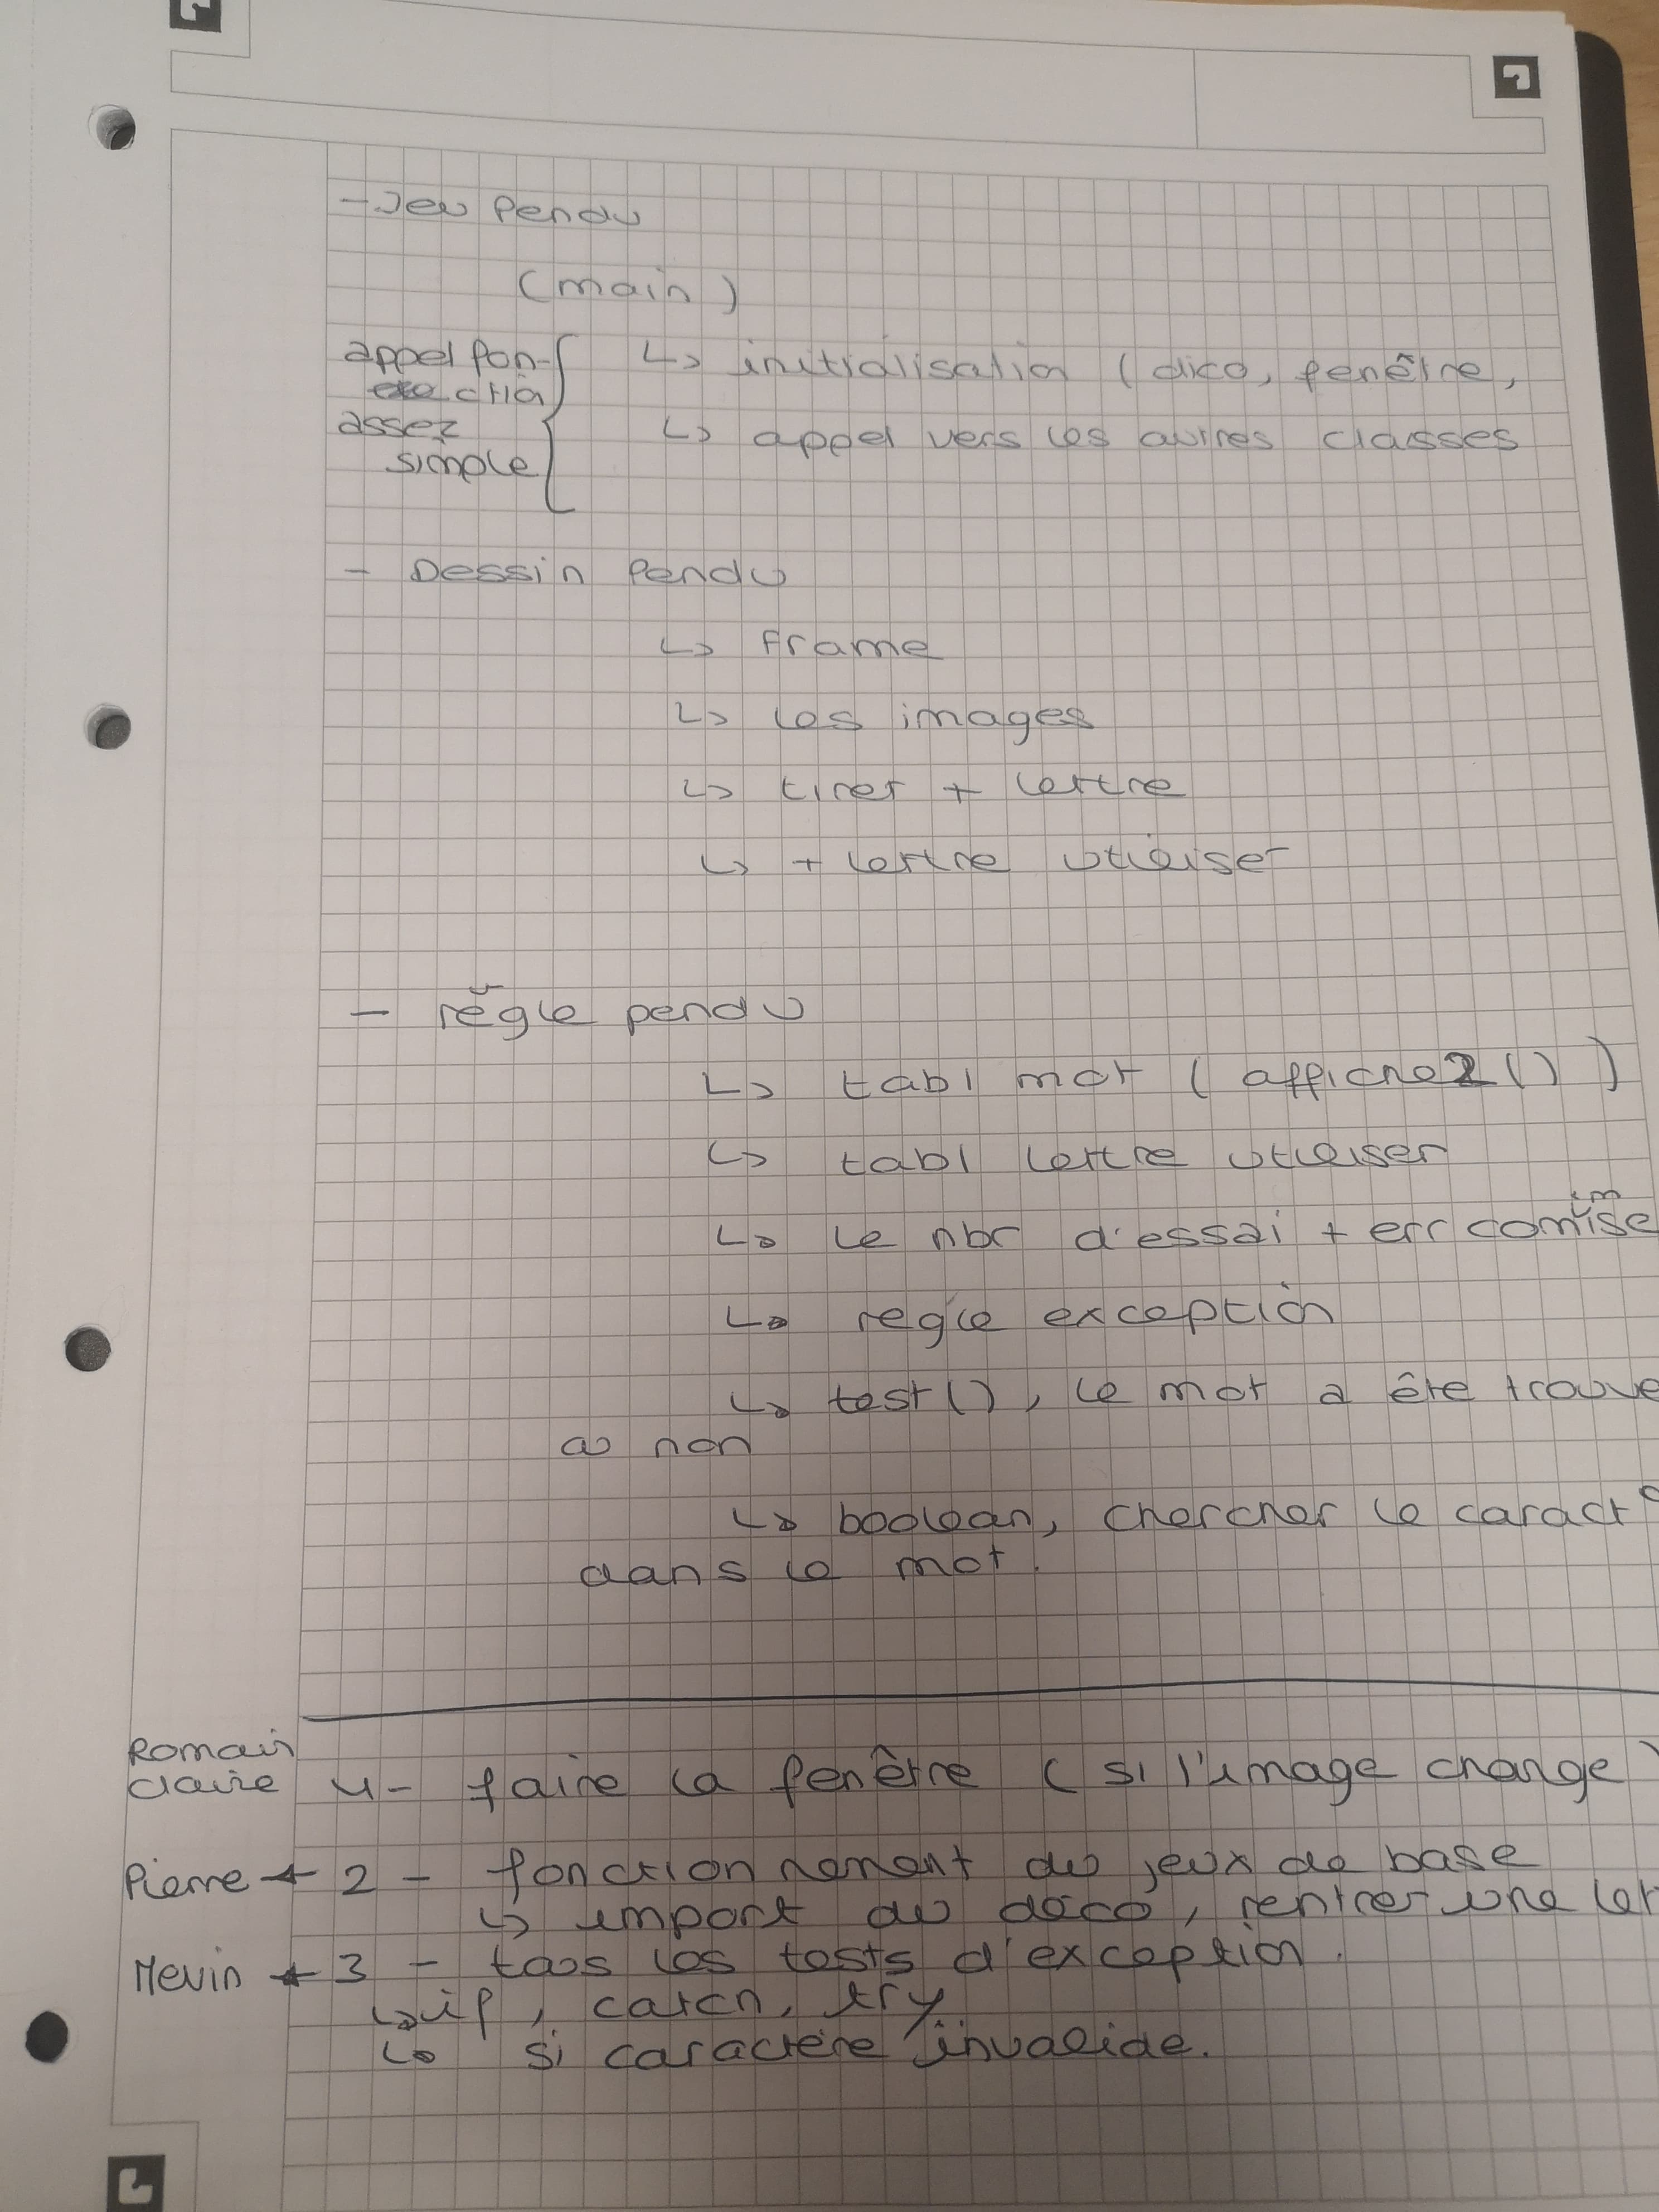 - Jeu Pendu
(main)
appel fon- ↳ initialisation (dico, fenêtre,
ction
assez ↳ appel vers les autres classes
simple
- Dessin Pendu
↳ Frame
↳ les images
↳ tiret + lettre
↳ + lettre utiliser
- règle pendu
↳ tabl mot (afficher())
↳ tabl lettre utiliser
↳ le nbr d'essai + err commise
↳ regle exception
↳ test(), le mot a été trouve
ou non
↳ boolean, chercher le caract
dans le mot.
Romain
Claire 4- faire la fenêtre (si l'image change)
Pierre ← 2 - fonctionnement du jeux de base
↳ import du dico, rentrer une let
Mevin ← 3 - tous les tests d'exception.
↳ if, catch, try
↳ si caractère invalide.